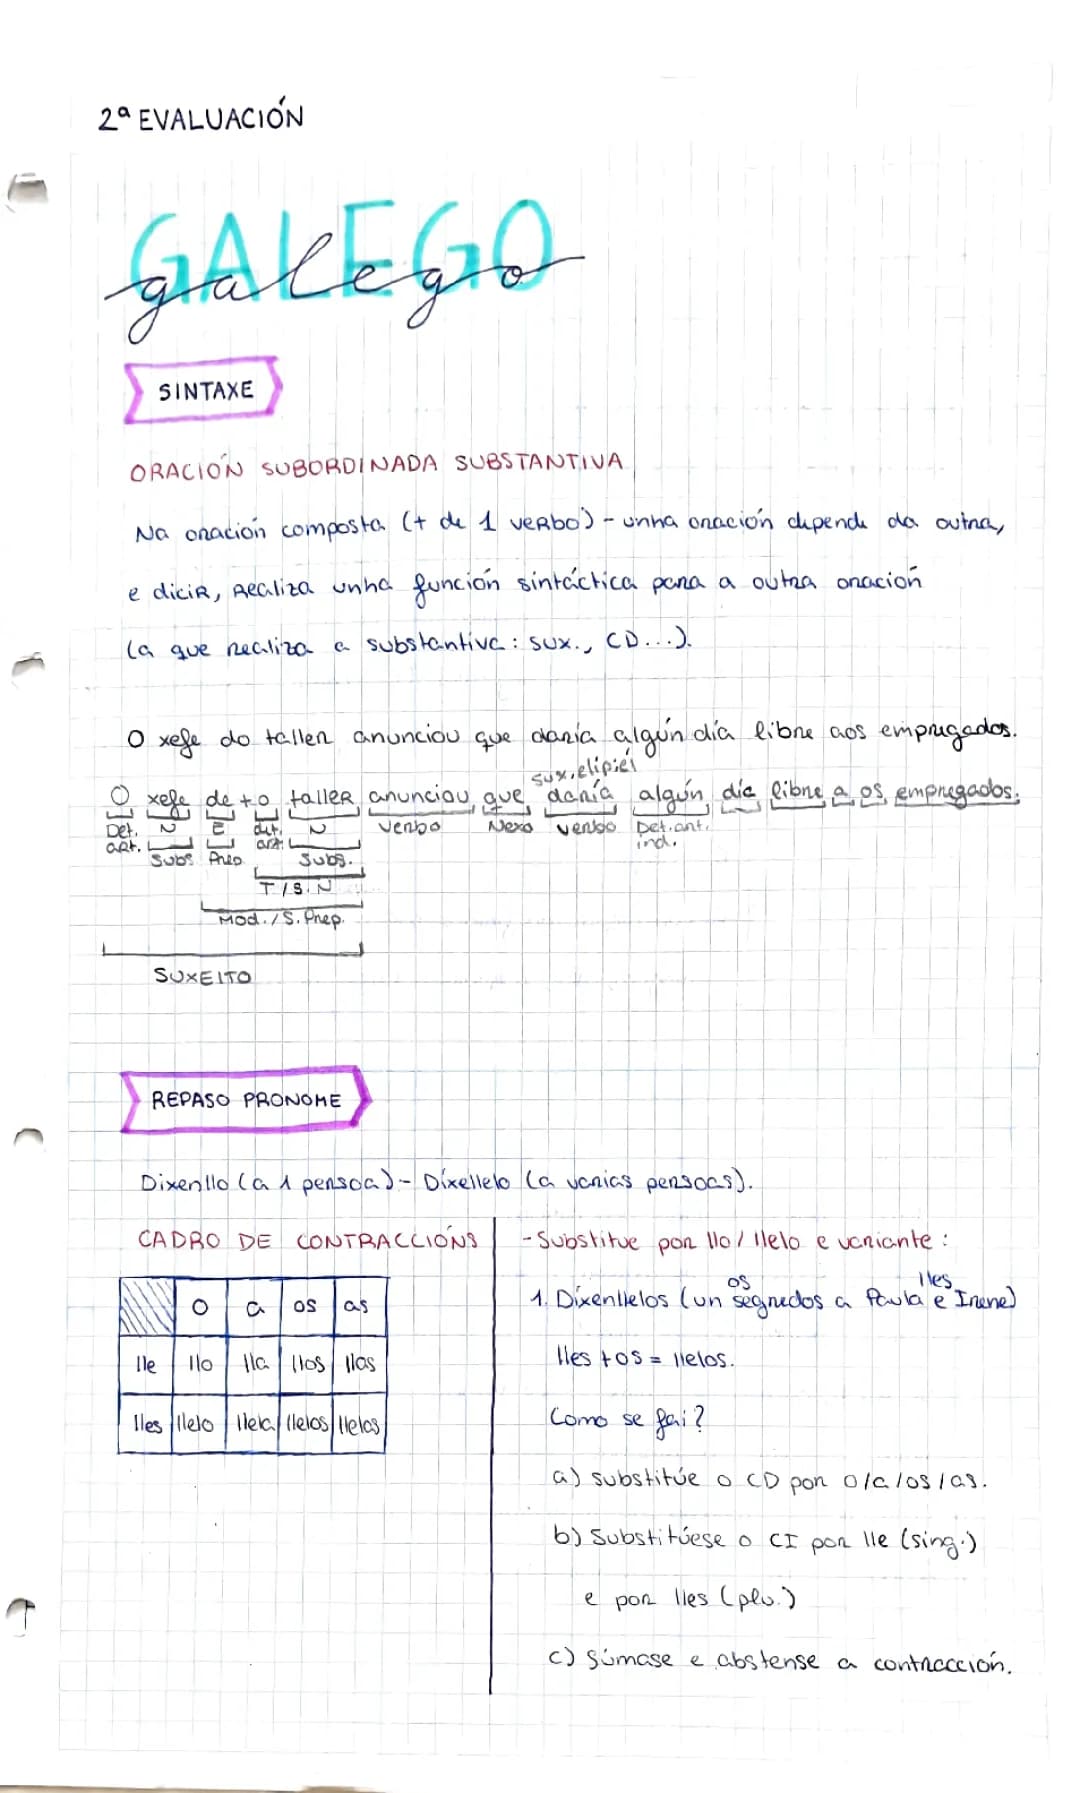 2ª EVALUACIÓN
GALEGO
galego
SINTAXE
ORACIÓN SUBORDINADA SUBSTANTIVA
Na oración composta (+ de 1 verbo) - unha oración depende da outra,
e dicir, realiza unha función sintáctica para a outra oración
(a que realiza a substantiva: sux., CD...).
O xefe do taller anunciou que daría algún día libre aos empregados.
sux. elipiel
O xefe de + o taller anunciou que daría algún día libre a os empregados.
Det. N E det. N verbo Nexo verbo Det. ant.
art. art. ind.
Subs. Prep Subs.
T / S. N
Mod. / S. Prep.
SUXEITO
REPASO PRONOME
Dixenllo (a 1 persoa) - Díxellelo (a varias persoas).
CADRO DE CONTRACCIÓNS
o a os as
lle llo lla llos llas
lles llelo llela llelos llelas
- Substitue por llo / llelo e variante:
os lles
1. Díxenllelos (un segredos a Paula e Irene)
lles + os = llelos.
Como se fai?
a) substitúe o CD por o/a/os/as.
b) Substitúese o CI por lle (sing.)
e por lles (plu.)
c) Súmase e abstense a contracción.